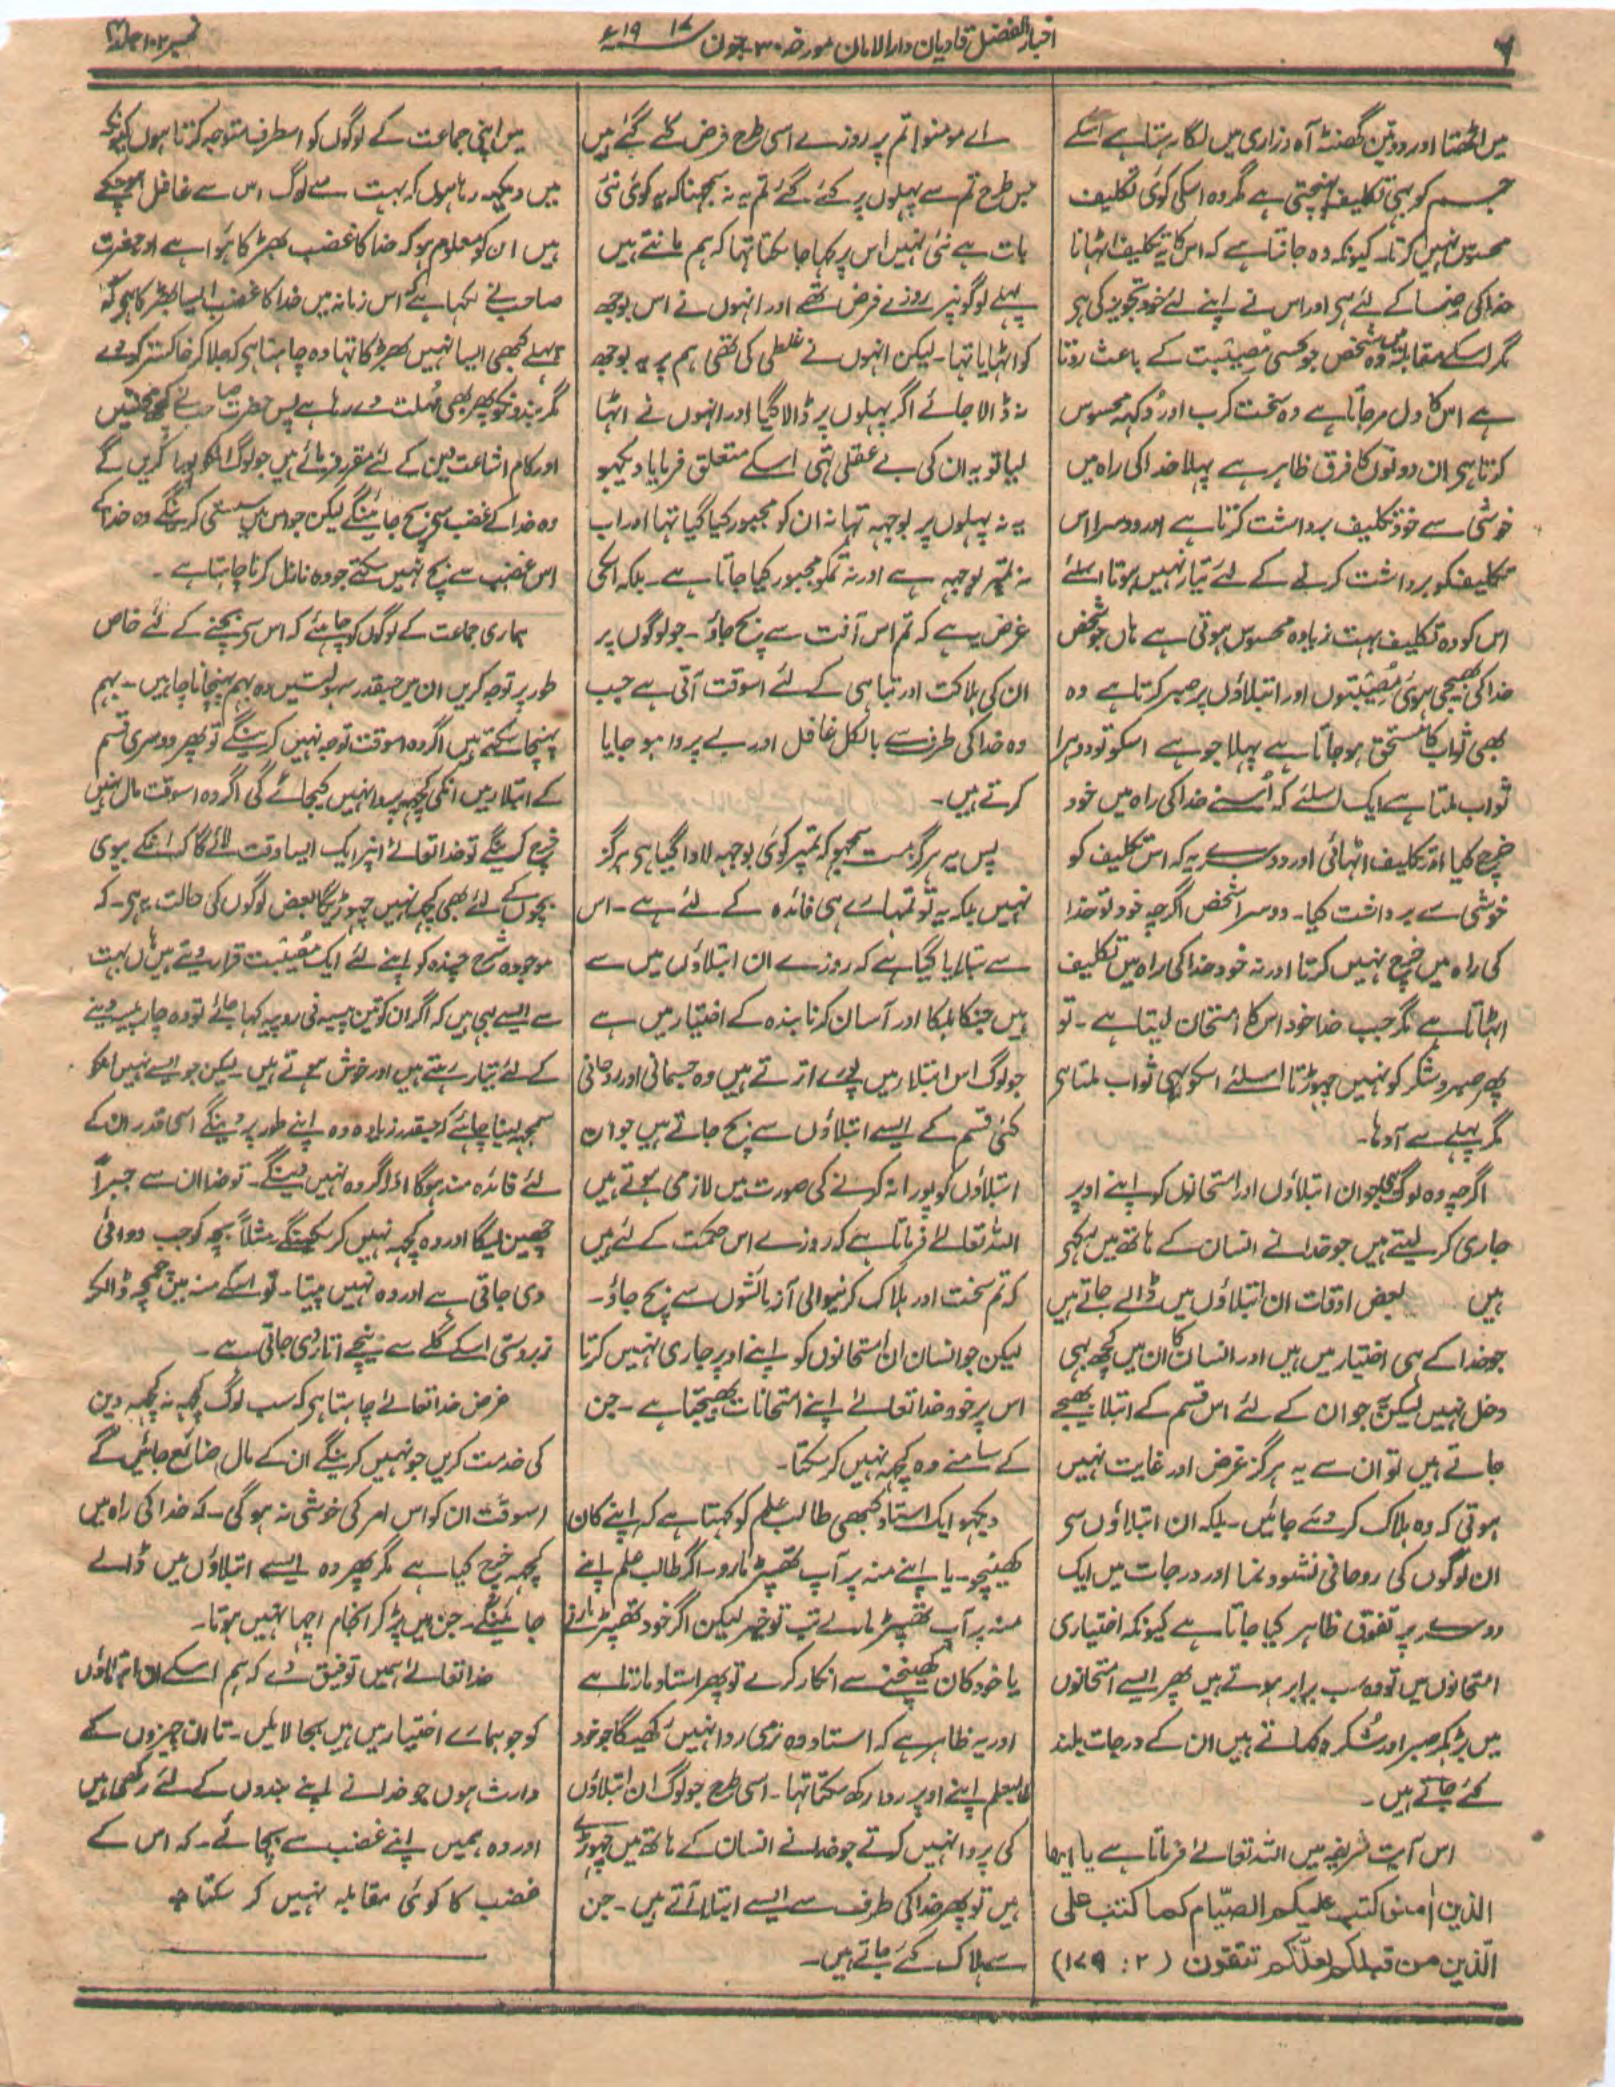 ۶
اخبار الفضل قادیان دارالامان مورخہ ۳۰ جون ۱۹۱۷ء
نمبر ۱۰۲ جلد
میں اٹھتا اور دو تین گھنٹہ آہ و زاری میں لگا رہتا ہے اسکے
جسم کو بھی تکلیف پہنچتی ہے مگر وہ اسکی کوئی تکلیف
محسوس نہیں کرتا۔ کیونکہ وہ جانتا ہے کہ اس کا یہ تکلیف اٹھانا
خدا کی رضا کے لئے ہی اور اس نے اپنے لئے خود تجویز کی ہی
مگر اسکے مقابلہ میں وہ شخص جو کسی مصیبت کے باعث روتا
ہے اس کا دل مرجاتا ہے وہ سخت کرب اور دکہہ محسوس
کرتا ہی ان دونوں کا فرق ظاہر ہے پہلا خدا کی راہ میں
خوشی سے خود تکلیف برداشت کرتا ہے اور دوسرا اس
تکلیف کو برداشت کرنے کے لئے تیار نہیں ہوتا اسلئے
اس کو وہ تکلیف بہت زیادہ محسوس ہوتی ہے ہاں جو شخص
خدا کی بھیجی ہوئی مصیبتوں اور ابتلاؤں پر صبر کرتا ہے وہ
بھی ثواب کا مستحق ہو جاتا ہے پہلا جو ہے اسکو تو دوہرا
ثواب ملتا ہے ایک اسلئے کہ اُسنے خدا کی راہ میں خود
خرچ کیا اور تکلیف اٹہائی اور دوسرے یہ کہ اس تکلیف کو
خوشی سے برداشت کیا۔ دوسرا شخص اگرچہ خود تو خدا
کی راہ میں خرچ نہیں کرتا اور نہ خود خدا کی راہ میں تکلیف
اٹہاتا ہے مگر جب خدا خود اس کا امتحان لیتا ہے۔ تو
پھر صبر و شکر کو نہیں چہوڑتا اسلئے اسکو بھی ثواب ملتا ہی
مگر پہلے سے آدہا۔
اگرچہ وہ لوگ بھی جو ان ابتلاؤں اور امتحانوں کو اپنے اوپر
جاری کر لیتے ہیں جو خدا نے انسان کے ہاتھ میں رکھی
ہیں بعض اوقات ان ابتلاؤں میں ڈالے جاتے ہیں
جو خدا کے ہی اختیار میں ہیں اور انسان کا ان میں کچھ بھی
دخل نہیں لیکن جو ان کے لئے اس قسم کے ابتلا بھیجے
جاتے ہیں تو ان سے یہ ہرگز غرض اور غایت نہیں
ہوتی کہ وہ ہلاک کر دیئے جائیں۔ بلکہ ان ابتلاؤں سی
ان لوگوں کی روحانی نشو و نما اور درجات میں ایک
دوسرے پر تفوق ظاہر کیا جاتا ہے کیونکہ اختیاری
امتحانوں میں تو وہ سب برابر ہوتے ہیں پھر ایسے امتحانوں
میں پڑکر صبر اور شکر دکھاتے ہیں ان کے درجات بلند
کئے جاتے ہیں۔
اس آیت شریفہ میں اللہ تعالیٰ فرماتا ہے یا ایھا
الذین اٰمنوا کتب علیکم الصیام کما کتب علی
الذین من قبلکم لعلکم تتقون (۲: ۱۷۹)
اے مومنو! تم پر روزے اسی طرح فرض کئے گئے ہیں
جس طرح تم سے پہلوں پر کئے گئے تم یہ نہ سمجھنا کہ یہ کوئی نئی
بات ہے نئی نہیں اس پر کہا جا سکتا تہا کہ ہم مانتے ہیں
پہلے لوگوں پر روزے فرض تھے اور انہوں نے اس بوجھ
کو اٹہایا تہا۔ لیکن انہوں نے غلطی کی تھی ہم پر یہ بوجھ
نہ ڈالا جائے اگر پہلوں پر ڈالا گیا اور انہوں نے اٹہا
لیا تو یہ ان کی بے عقلی تھی اسکے متعلق فرمایا دیکھو
یہ نہ پہلوں پر بوجہہ تہا نہ ان کو مجبور کیا گیا تہا اور اب
نہ تمپر بوجہہ ہے اور نہ تمکو مجبور کیا جاتا ہے۔ بلکہ اسکی
غرض یہ ہے کہ تم اس آفت سے بچ جاؤ۔ جو لوگوں پر
ان کی ہلاکت اور تباہی کے لئے اسوقت آتی ہے جب
وہ خدا کی طرف سے بالکل غافل اور بے پروا ہو جایا
کرتے ہیں۔
پس یہ ہرگز مت سمجھو کہ تمپر کوئی بوجہہ لادا گیا ہی ہرگز
نہیں بلکہ یہ تو تمہارے ہی فائدہ کے لئے ہے۔ اس
سے بتلایا گیا ہے کہ روزے ان ابتلاؤں میں سے
ہیں جنکا ہلکا اور آسان کرنا بندہ کے اختیار میں ہے
جو لوگ اس ابتلا میں پورے اترتے ہیں وہ جسمانی اور روحانی
کئی قسم کے ایسے ابتلاؤں سے بچ جاتے ہیں جو ان
ابتلاؤں کو پورا نہ کرنے کی صورت میں لازمی ہوتے ہیں
اللہ تعالیٰ فرماتا ہے کہ روزے اس حکمت کے لئے ہیں
کہ تم سخت اور ہلاک کرنیوالی آزمائشوں سے بچ جاؤ۔
لیکن جو انسان ان امتحانوں کو اپنے اوپر جاری نہیں کرتا
اس پر خود خدا تعالیٰ اپنے امتحانات بھیجتا ہے۔ جن
کے سامنے وہ کچہہ نہیں کر سکتا۔
دیکھو ایک استاد کبھی طالب علم کو کہتا ہے کہ اپنے کان
کھینچو۔ یا اپنے منہ پر آپ تھپڑ مارو۔ اگر طالب علم اپنے
منہ پر آپ تھپڑ مارلے تب تو خیر لیکن اگر خود تھپڑ مارنے
یا خود کان کھینچنے سے انکار کرے تو پھر استاد مارتا ہے
اور یہ ظاہر ہے کہ استاد وہ نرمی روا نہیں رکھیگا جو خود
طالبعلم اپنے اوپر روا رکھ سکتا تہا۔ اسی طرح جو لوگ ان ابتلاؤں
کی پروا نہیں کرتے جو خدا نے انسان کے ہاتھ میں چہوڑے
ہیں تو پھر خدا کی طرف سے ایسے ابتلا آتے ہیں۔ جن
سے ہلاک کئے جاتے ہیں۔
میں اپنی جماعت کے لوگوں کو اسطرف متوجہ کرتا ہوں کیونکہ
میں دیکہہ رہا ہوں کہ بہت سے لوگ اس سے غافل ہو چکے
ہیں ان کو معلوم ہو کہ خدا کا غضب بھڑکا ہوا ہے اور حضرت
صاحب نے لکہا ہے کہ اس زمانہ میں خدا کا غضب ایسا بھڑکا ہی کہ
پہلے کبھی ایسا نہیں بھڑکا تہا وہ چاہتا ہی کہ جلا کر خاکستر کردے
مگر بندونکو پھر بھی مہلت دے رہا ہے پس حضرت صاحب نے کچھ
اور کام اشاعت دین کے لئے مقرر فرمائے ہیں جو لوگ انکو پورا کریں گے
وہ خدا کے غضب سے بچ جائینگے لیکن جو اس میں سستی کرینگے وہ خدا کے
اس غضب سے بچ نہیں سکتے جو وہ نازل کرنا چاہتا ہے۔
ہماری جماعت کے لوگوں کو چاہئے کہ اس سی بچنے کے لئے خاص
طور پر توجہ کریں ان میں جسقدر سہولتیں وہ بہم پہنچانا چاہیں۔ بہم
پہنچا سکتے ہیں اگر وہ اسوقت توجہ نہیں کرینگے تو پھر دوسری قسم
کے ابتلا میں انکی کچہہ پروا نہیں کیجائے گی اگر وہ اسوقت مال نہیں
خرچ کرینگے تو خدا تعالیٰ انپر ایک ایسا وقت لائے گا کہ انکے بیوی
بچوں کے لئے بھی کچھ نہیں چہوڑیگا بعض لوگوں کی حالت یہ ہی۔ کہ
موجودہ شرح چندہ کو اپنے لئے ایک مصیبت قرار دیتے ہیں ہاں بہت
سے ایسے بھی ہیں کہ اگر ان کو تین پیسہ فی روپیہ کہا جائے تو وہ چار پیسے دینے
کے لئے تیار رہتے ہیں اور خوش ہوتے ہیں۔ لیکن جو ایسے نہیں انکو
سمجہہ لینا چاہئے کہ جسقدر زیادہ وہ اپنے طور پر دینگے اسی قدر ان کے
لئے فائدہ مند ہوگا اور اگر وہ نہیں دینگے۔ تو خدا ان سے جبراً
چھین لیگا اور وہ کچہہ نہیں کر سکینگے۔ مثلاً بچہ کو جب دوائی
دی جاتی ہے اور وہ نہیں پیتا۔ تو اسکے منہ میں چمچہ ڈالکر
زبردستی اسکے گلے سے نیچے اتاری جاتی ہے۔
غرض خدا تعالیٰ چاہتا ہی کہ سب لوگ کچہہ نہ کچہہ دین
کی خدمت کریں جو نہیں کرینگے ان کے مال ضائع جائیں گے
اسوقت ان کو اس امر کی خوشی نہ ہوگی۔ کہ خدا کی راہ میں
کچہہ خرچ کیا ہے مگر پھر وہ ایسے ابتلاؤں میں ڈالے
جائینگے۔ جن میں پڑکر انجام اچہا نہیں ہوتا۔
خدا تعالیٰ ہمیں توفیق دے کہ ہم اسکے ان ابتلاؤں
کو جو ہمارے اختیار میں ہیں بجا لائیں۔ تا ان چیزوں کے
وارث ہوں جو خدا نے اپنے بندوں کے لئے رکھی ہیں
اور وہ ہمیں اپنے غضب سے بچائے۔ کہ اس کے
غضب کا کوئی مقابلہ نہیں کر سکتا ٭